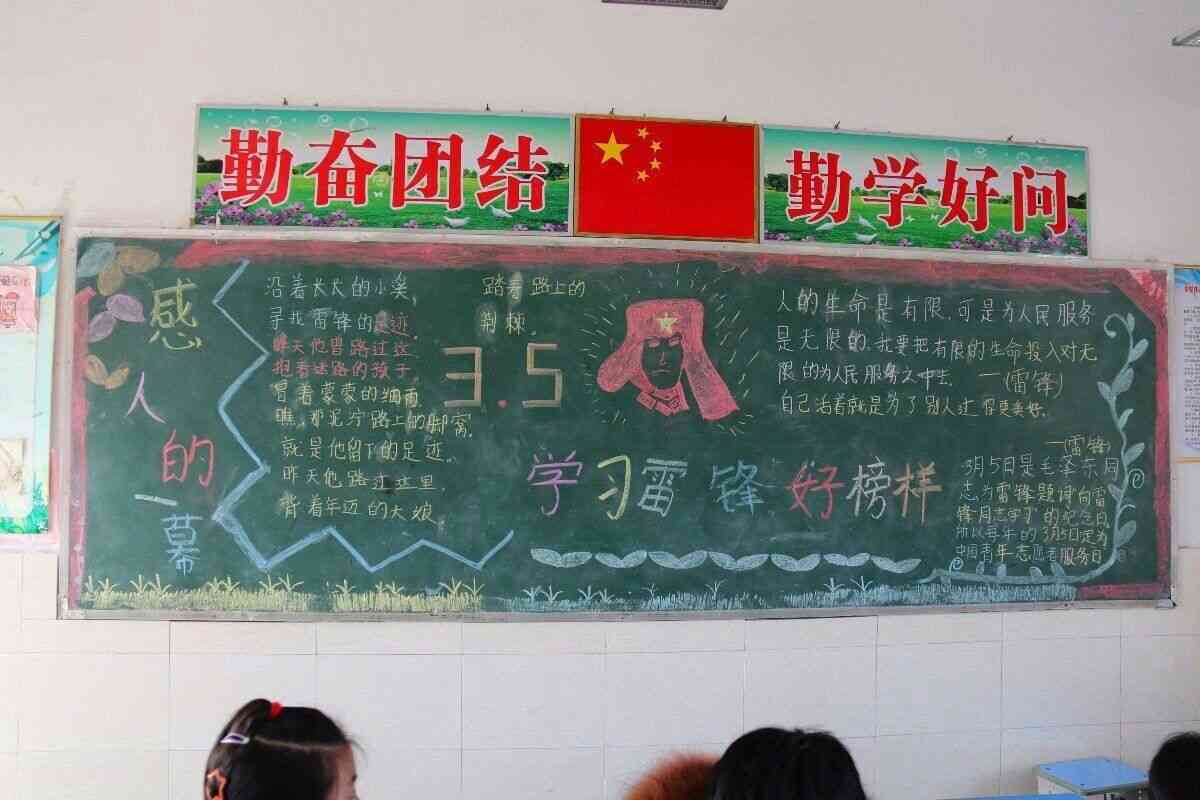 勤奋团结
勤学好问
感人的一幕
沿着长长的小溪,
寻找雷锋的足迹.
昨天他曾路过这
抱着迷路的孩子
冒着蒙蒙的细雨
瞧,那泥泞路上的脚窝,
就是他留下的足迹.
昨天他路过这里,
背着年迈的大娘,
踏着路上的
荆棘。
3.5
学习雷锋好榜样
人的生命是有限,可是为人民服务
是无限的,我要把有限的生命投入对无
限的为人民服务之中去. —(雷锋)
自己活着就是为了别人过得更美好.
—(雷锋)
3月5日是毛泽东同
志为雷锋题词"向雷
锋同志学习"的纪念日,
所以每年的3月5日定为
中国青年志愿者服务日